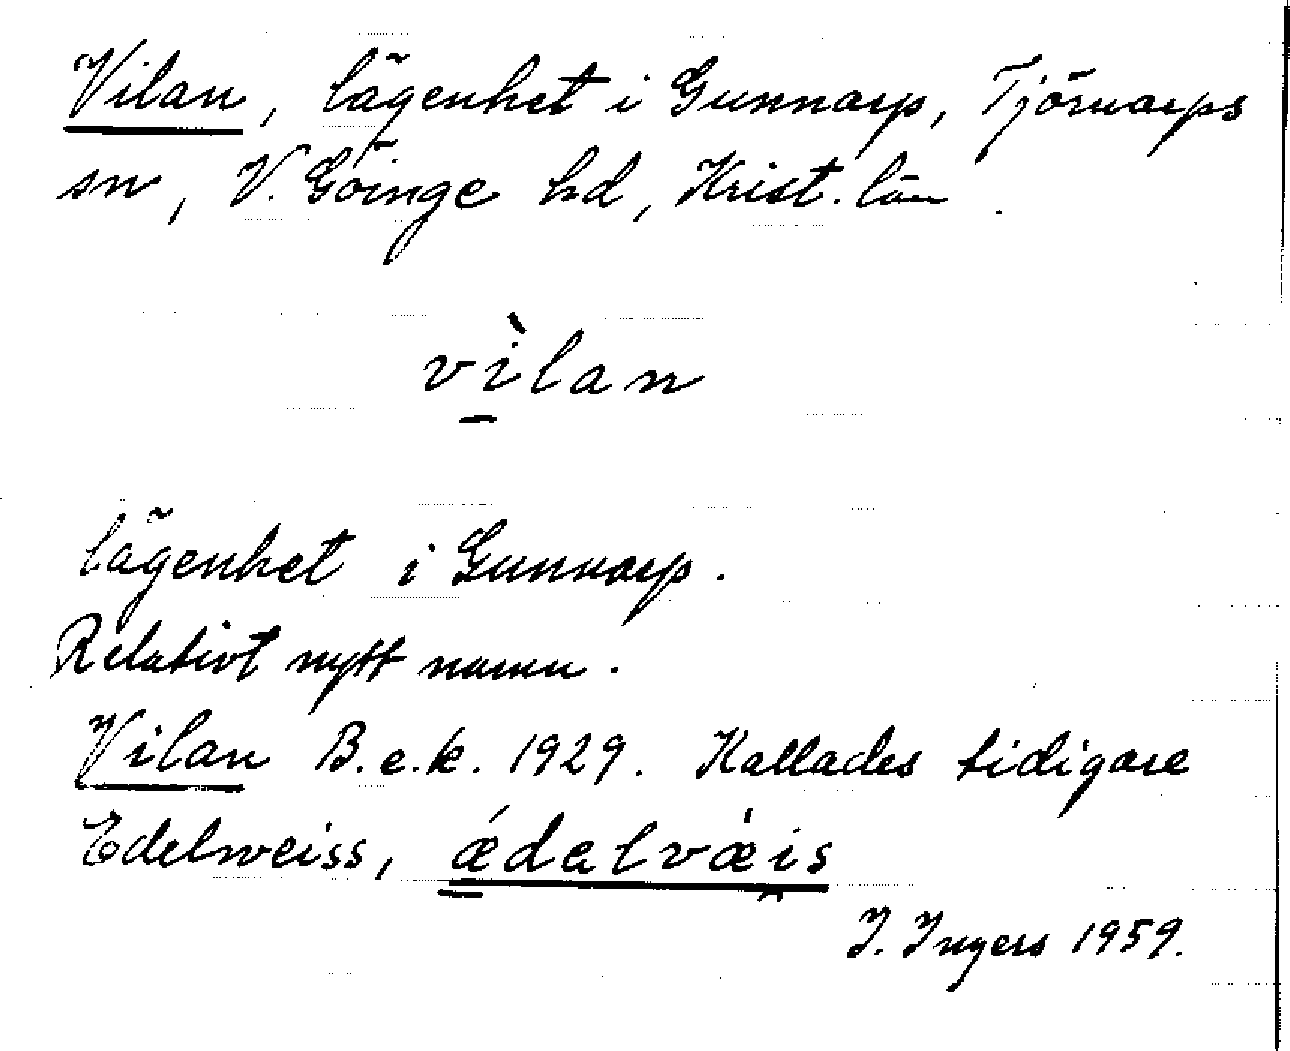 Vilan, lägenhet i Gunnarp, Tjörnarps
sn, V. Göinge hd, Krist. län.
vìlan
lägenhet i Gunnarp.
Relativt nytt namn.
Vilan B.e.k. 1929. Kallades tidigare
Edelweiss, ǽdalvæ̀is
I. Ingers 1959.